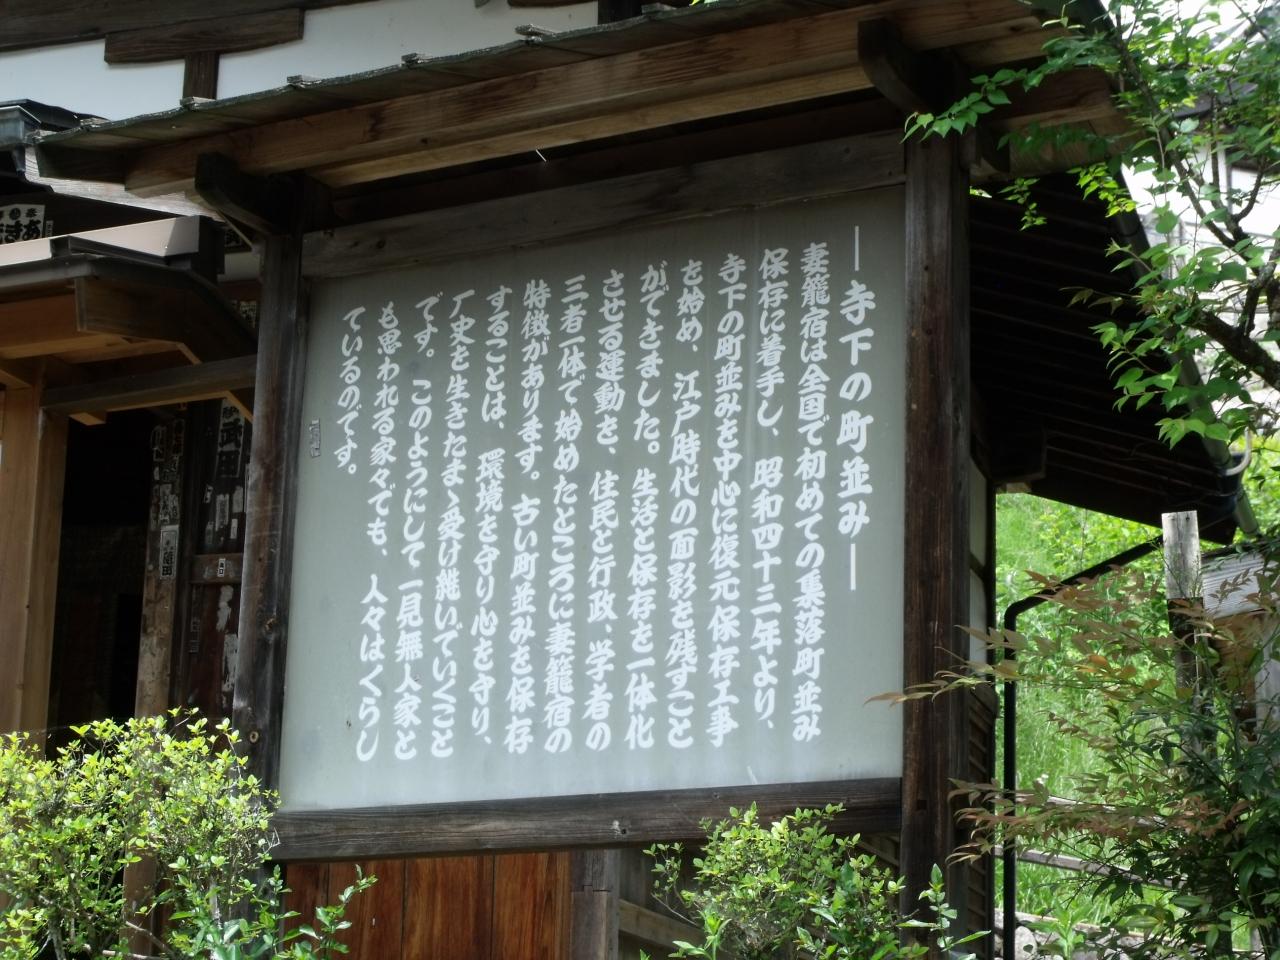 ―寺下の町並み―
妻籠宿は全国で初めての集落町並み
保存に着手し、昭和四十三年より、
寺下の町並みを中心に復元保存工事
を始め、江戸時代の面影を残すこと
ができました。生活と保存を一体化
させる運動を、住民と行政、学者の
三者一体で始めたところに妻籠宿の
特徴があります。古い町並みを保存
することは、環境を守り心を守り、
厂史を生きたまゝ受け継いでいくこと
です。このようにして一見無人家と
も思われる家々でも、人々はくらし
ているのです。
武田